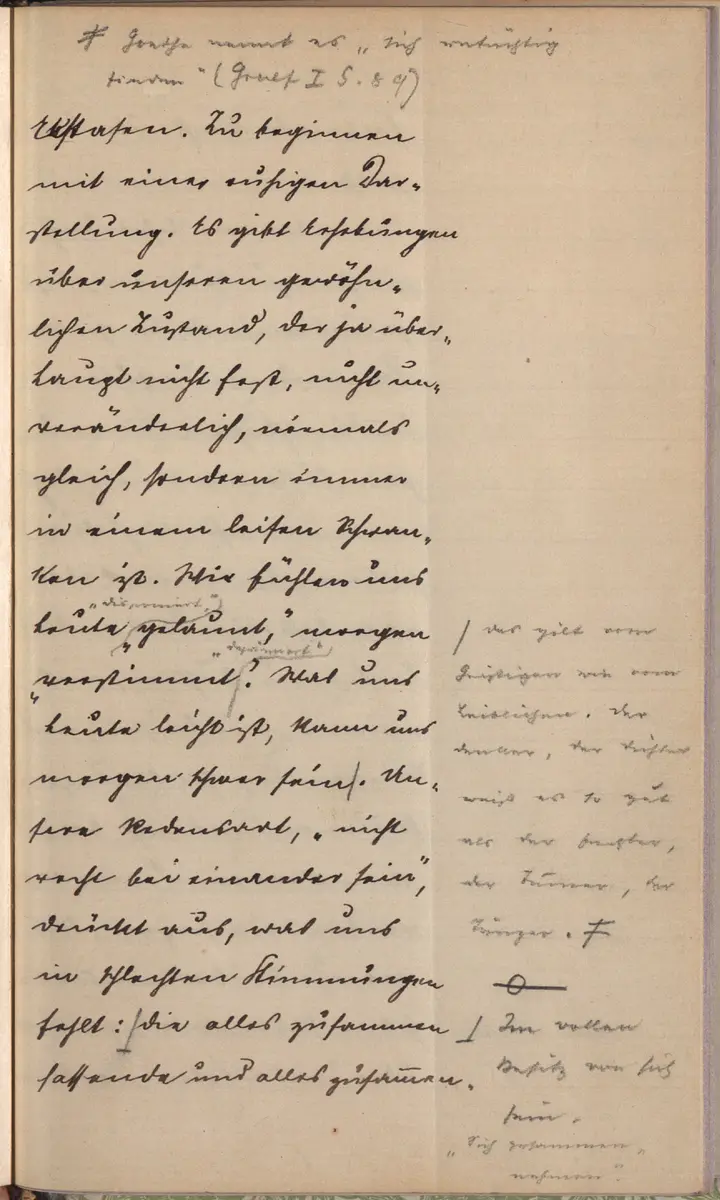 ≠ Goethe nennt es „sich untüchtig
finden" (Graef I S. 89)
Ekstasen. Zu beginnen
mit einer ruhigen Dar-
stellung. Es gibt Erhebungen
über unseren gewöhn-
lichen Zustand, der ja über-
haupt nicht fest, nicht un-
veränderlich, niemals
gleich, sondern immer
in einem leisen Schwan-
ken ist. Wir fühlen uns
heute „gelaunt," morgen
„verstimmt". Was uns
heute leicht ist, kann uns
morgen schwer sein. Un-
sere Redensart, „nicht
recht bei einander sein",
drückt aus, was uns
in schlechten Stimmungen
fehlt: die alles zusammen
fassende und alles zusammen-
das gilt vom
Geistigen wie vom
Leiblichen. Der
Denker, der Dichter
weiß es so gut
als der Fechter,
der Turner, der
Tänzer. ≠
Im vollen
Besitz von sich
sein.
„Sich zusammen-
nehmen".